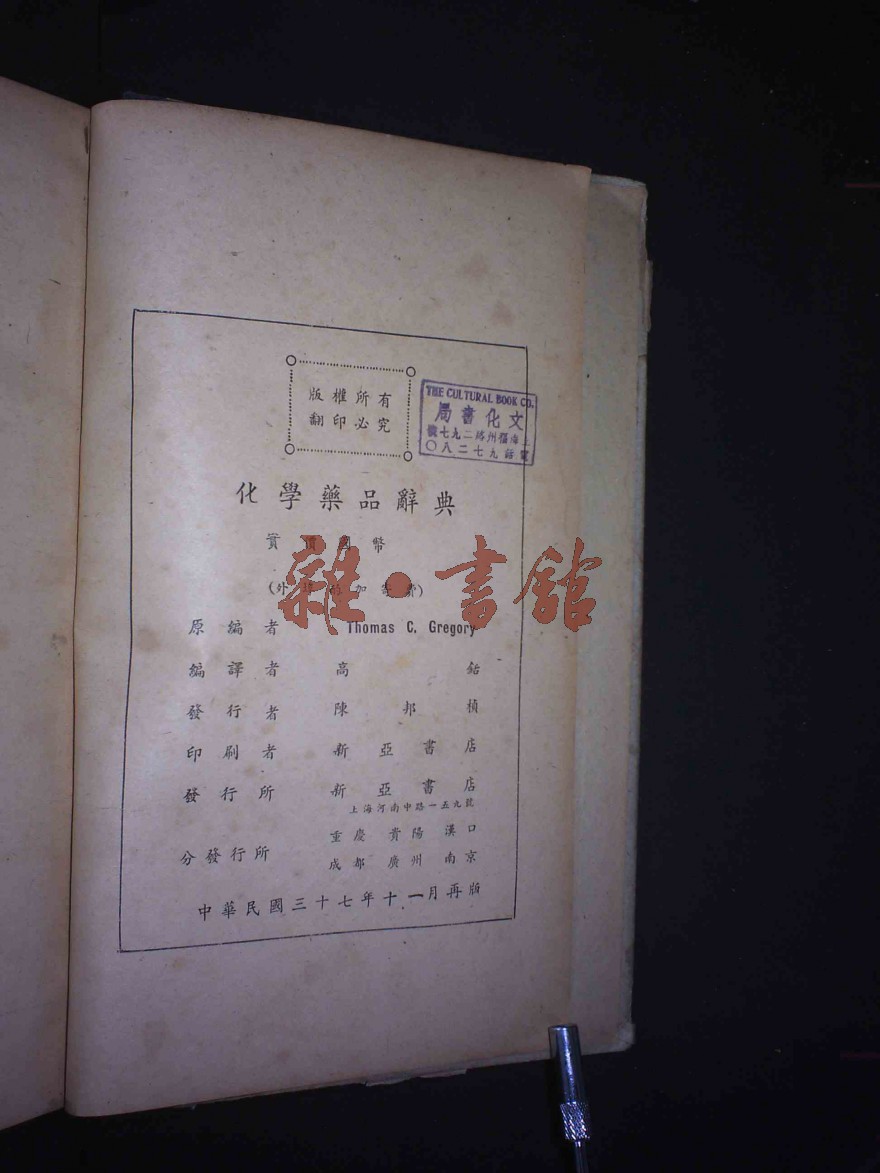 版權所有
翻印必究
THE CULTURAL BOOK CO.
文化書局
上海福州路二九七號
電話九七二八〇
化學藥品辭典
實價國幣
(外埠酌加寄費)
雜·書館
原編者 Thomas C. Gregory
編譯者 高銛
發行者 陳邦楨
印刷者 新亞書店
發行所 新亞書店
上海河南中路一五九號
分發行所 重慶 貴陽 漢口
成都 廣州 南京
中華民國三十七年十一月再版